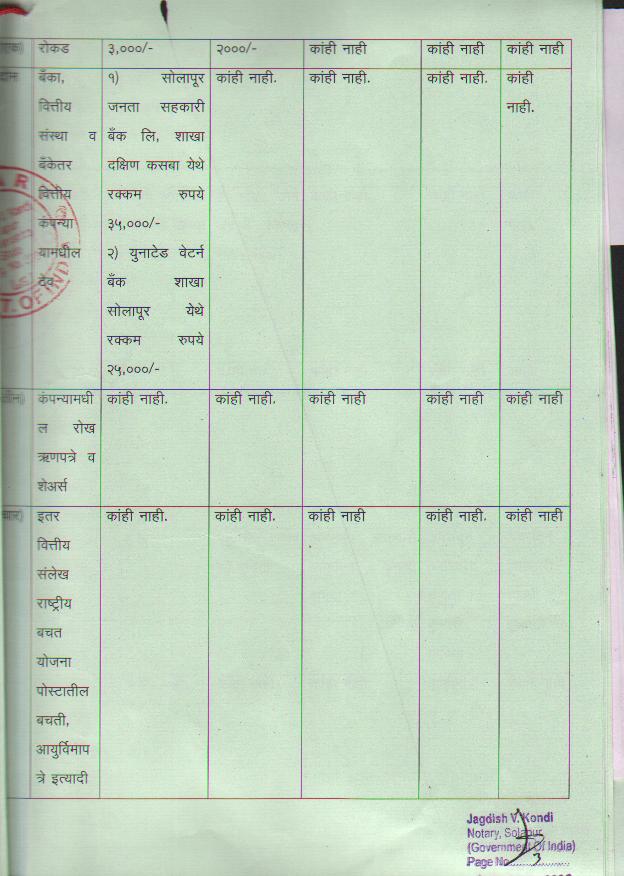 एक) रोकड ३,०००/- २०००/- कांही नाही कांही नाही कांही नाही
दोन बँका, १) सोलापूर कांही नाही. कांही नाही. कांही नाही. कांही
वित्तीय जनता सहकारी नाही.
संस्था व बँक लि, शाखा
बँकेतर दक्षिण कसबा येथे
वित्तीय रक्कम रुपये
कंपन्या ३५,०००/-
यामधील २) युनाटेड वेटर्न
ठेव बँक शाखा
सोलापूर येथे
रक्कम रुपये
२५,०००/-
तीन) कंपन्यामधी कांही नाही. कांही नाही. कांही नाही कांही नाही कांही नाही
ल रोख
ऋणपत्रे व
शेअर्स
चार) इतर कांही नाही. कांही नाही. कांही नाही कांही नाही. कांही नाही
वित्तीय
संलेख
राष्ट्रीय
बचत
योजना
पोस्टातील
बचती,
आयुर्विमाप
त्रे इत्यादी
Jagdish V. Kondi
Notary, Solapur
(Government Of India)
Page No. 3
T. OF IND